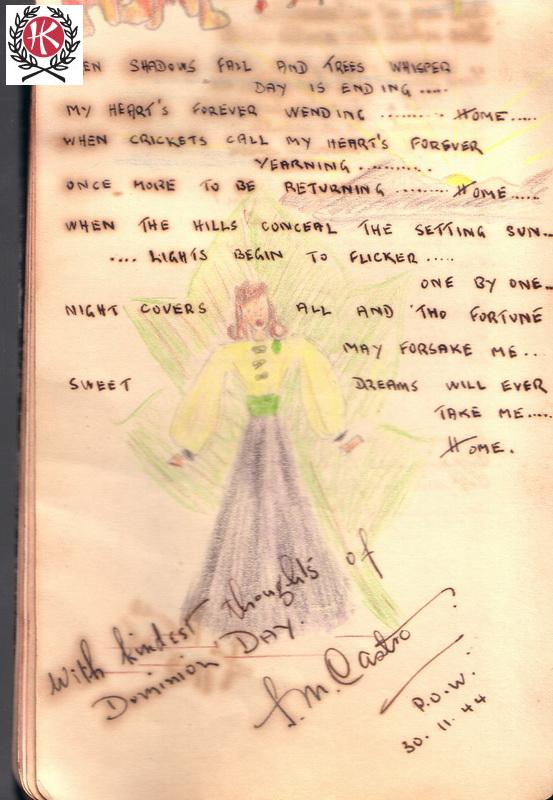 HK
EN SHADOWS FALL AND TREES WHISPER
DAY IS ENDING .....
MY HEART'S FOREVER WENDING ......... HOME.....
WHEN CRICKETS CALL MY HEART'S FOREVER
YEARNING ..........
ONCE MORE TO BE RETURNING ........ HOME.....
WHEN THE HILLS CONCEAL THE SETTING SUN...
.... LIGHTS BEGIN TO FLICKER .....
ONE BY ONE..
NIGHT COVERS ALL AND 'THO FORTUNE
MAY FORSAKE ME...
SWEET DREAMS WILL EVER
TAKE ME.....
HOME.
With kindest thoughts of
Dominion DAY.
S.M. Castro
P.O.W.
30.11.44